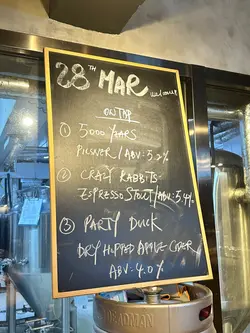 28TH MAR
welcome
ON TAP
① 5000 YEARS
PILSNER / ABV: 5.2%
② CRAZY RABBITS-
ESPRESSO STOUT / ABV: 5.4%
③ PARTY DUCK
DRY HOPPED APPLE CIDER
ABV: 4.0%
ROADMAN